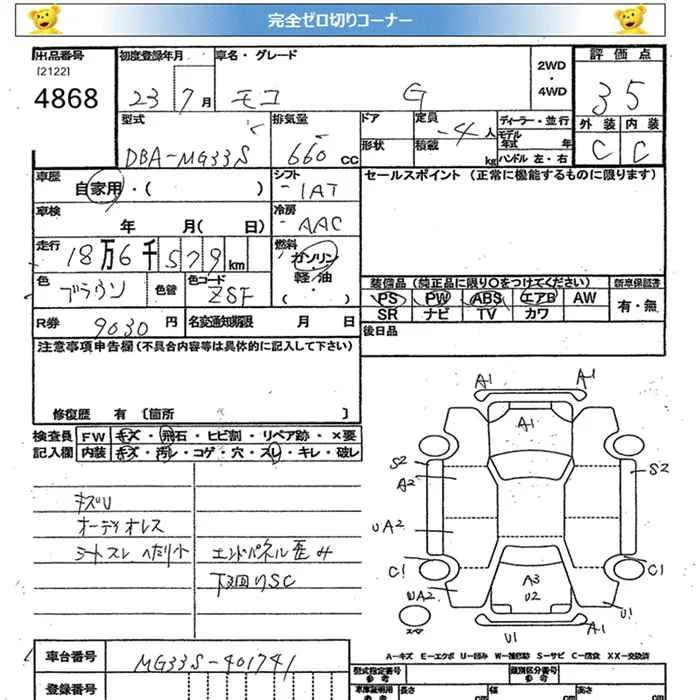 完全ゼロ切りコーナー
出品番号 初度登録年月 車名・グレード 2WD ・ 4WD 評価点
[2122]
4868 23 7月 モコ G 35
型式 排気量 ドア 定員 -4人 ディーラー・並行 外装 内装
モデル年式 年
DBA-MG33S 660 CC 形状 積載 kg ハンドル 左・右 C C
車歴 自家用・( ) シフト -IAT セールスポイント (正常に機能するものに限ります)
車検 年 月( 日) 冷房 AAC
走行 18万6千579km 燃料 ガソリン・軽油・( )
色 ブラウン 色替 色コード ZSF 装備品 (純正品に限り〇をつけてください) 新車保証書
PS PW ABS エアB AW 有・無
SR ナビ TV カワ
R券 9030円 名変通知期限 月 日 後日品
注意事項申告欄 (不具合内容等は具体的に記入して下さい)
修復歴 有 〔箇所 〕
検査員 FW キズ・飛石・ヒビ割・リペア跡・×要
記入欄 内装 キズ・汚レ・コゲ・穴・スレ・キレ・破レ
キズU
オーディオレス
シートスレ へたり小 エンドパネル歪み
下回りSC
A1 A1
A1
S2 S2
A2
UA2
C1 C1
UA2 A3 U2 U1
スペア U1 A1
A-キズ E-エクボ U-凹み W-補修跡 S-サビ C-腐食 XX-交換済
車台番号 MG33S-401741 型式指定番号 参考 類別区分番号 参考
登録番号 車庫証明用 参考 長さ cm 幅 cm 高さ cm